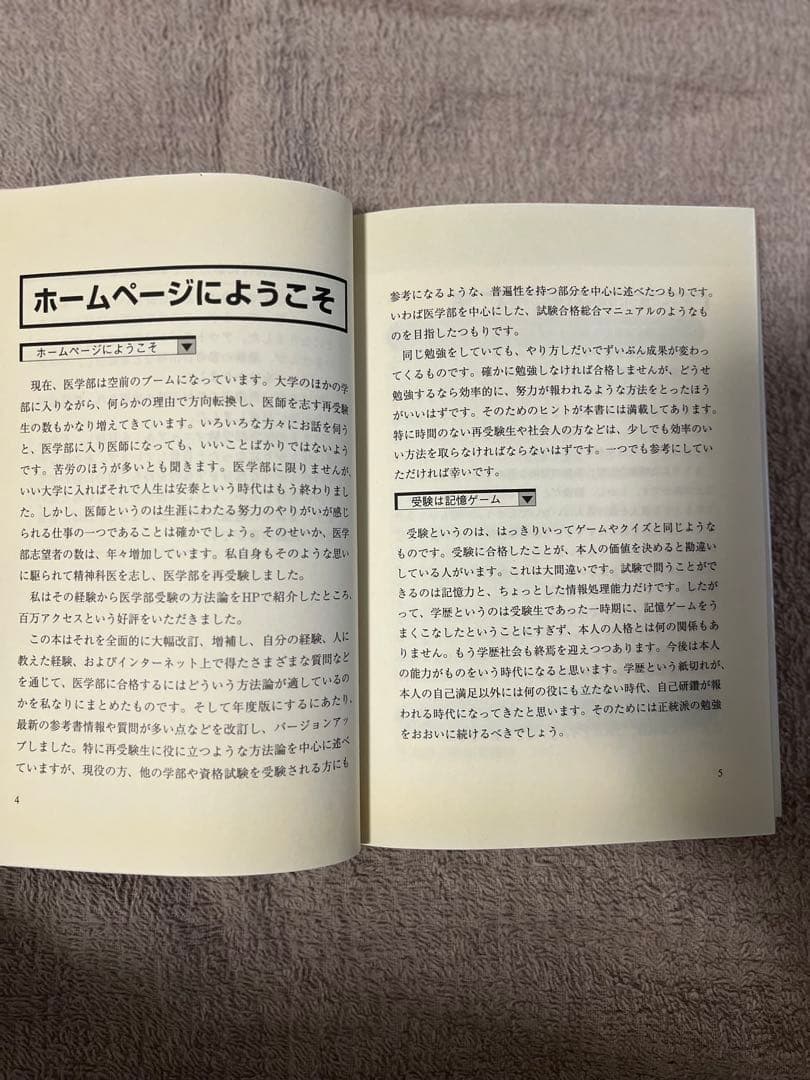 ホームページにようこそ
ホームページにようこそ ▼
現在、医学部は空前のブームになっています。大学のほかの学
部に入りながら、何らかの理由で方向転換し、医師を志す再受験
生の数もかなり増えてきています。いろいろな方々にお話を伺う
と、医学部に入り医師になっても、いいことばかりではないよう
です。苦労のほうが多いとも聞きます。医学部に限りませんが、
いい大学に入ればそれで人生は安泰という時代はもう終わりまし
た。しかし、医師というのは生涯にわたる努力のやりがいが感じ
られる仕事の一つであることは確かでしょう。そのせいか、医学
部志望者の数は、年々増加しています。私自身もそのような思い
に駆られて精神科医を志し、医学部を再受験しました。
私はその経験から医学部受験の方法論をHPで紹介したところ、
百万アクセスという好評をいただきました。
この本はそれを全面的に大幅改訂、増補し、自分の経験、人に
教えた経験、およびインターネット上で得たさまざまな質問など
を通じて、医学部に合格するにはどういう方法論が適しているの
かを私なりにまとめたものです。そして年度版にするにあたり、
最新の参考書情報や質問が多い点などを改訂し、バージョンアッ
プしました。特に再受験生に役に立つような方法論を中心に述べ
ていますが、現役の方、他の学部や資格試験を受験される方にも
4
参考になるような、普遍性を持つ部分を中心に述べたつもりです。
いわば医学部を中心にした、試験合格総合マニュアルのようなも
のを目指したつもりです。
同じ勉強をしていても、やり方しだいでずいぶん成果が変わっ
てくるものです。確かに勉強しなければ合格しませんが、どうせ
勉強するなら効率的に、努力が報われるような方法をとったほう
がいいはずです。そのためのヒントが本書には満載してあります。
特に時間のない再受験生や社会人の方などは、少しでも効率のい
い方法を取らなければならないはずです。一つでも参考にしてい
ただければ幸いです。
受験は記憶ゲーム ▼
受験というのは、はっきりいってゲームやクイズと同じような
ものです。受験に合格したことが、本人の価値を決めると勘違い
している人がいます。これは大間違いです。試験で問うことがで
きるのは記憶力と、ちょっとした情報処理能力だけです。したが
って、学歴というのは受験生であった一時期に、記憶ゲームをう
まくこなしたということにすぎず、本人の人格とは何の関係もあ
りません。もう学歴社会も終焉を迎えつつあります。今後は本人
の能力がものをいう時代になると思います。学歴という紙切れが、
本人の自己満足以外には何の役にも立たない時代、自己研鑽が報
われる時代になってきたと思います。そのためには正統派の勉強
をおおいに続けるべきでしょう。
5